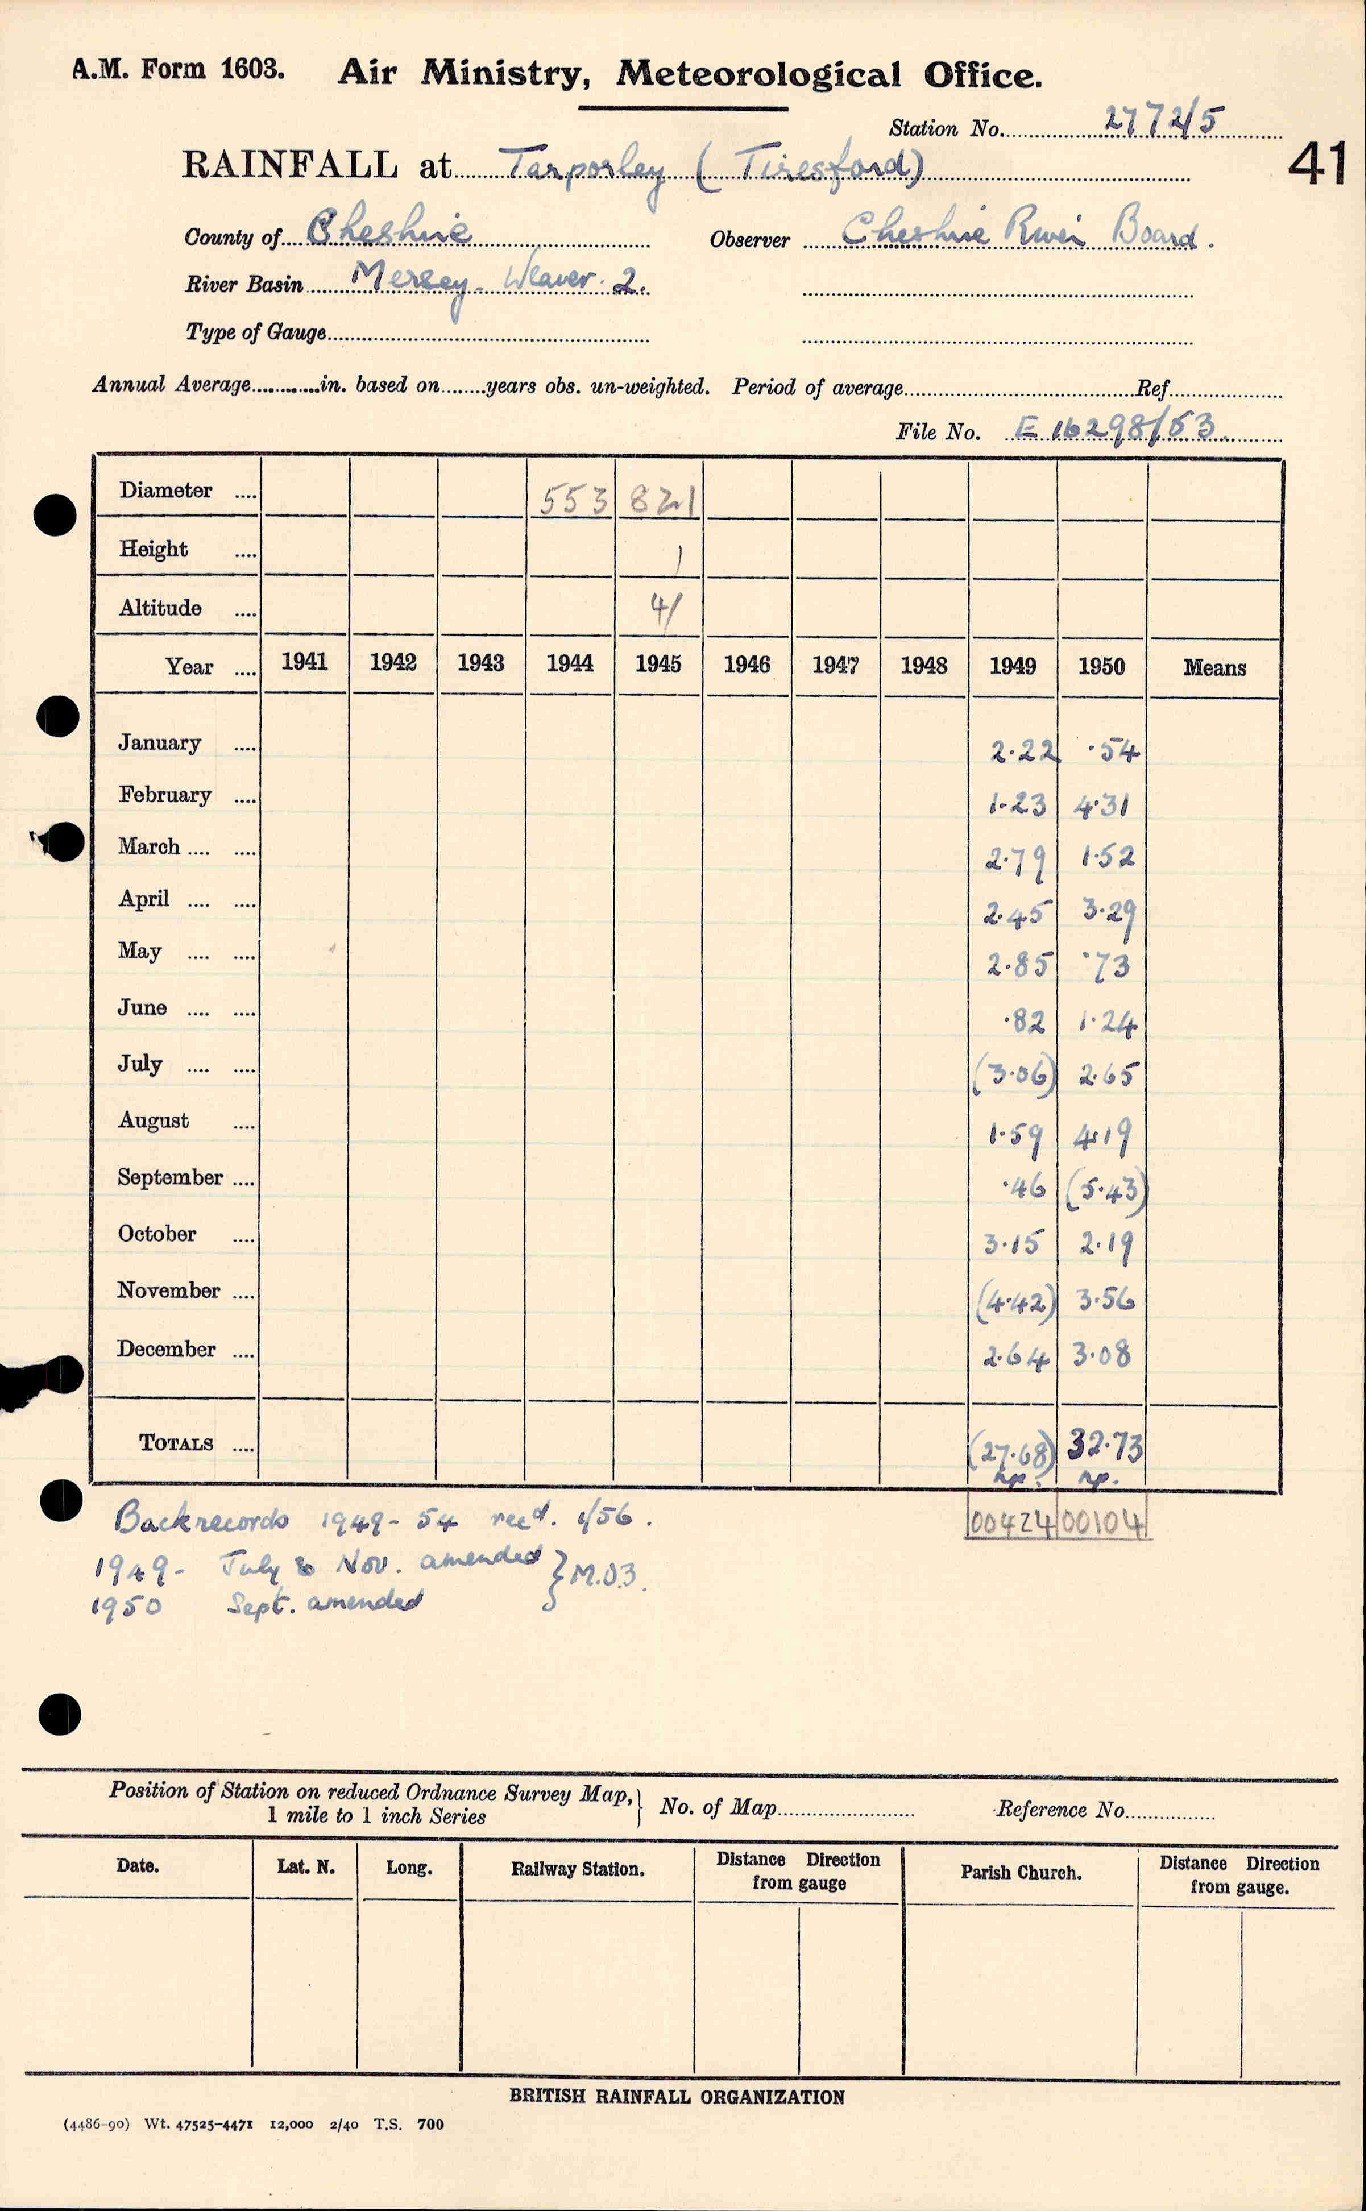 A.M. Form 1603. Air Ministry, Meteorological Office.
Station No. 2772/5
41
RAINFALL at Tarporley (Tiresford)
County of Cheshire Observer Cheshire River Board.
River Basin Mersey - Weaver. 2.
Type of Gauge
Annual Average in. based on years obs. un-weighted. Period of average Ref
File No. E 16298/53
Diameter .... 553 821
Height .... 1
Altitude .... 41
Year .... 1941 1942 1943 1944 1945 1946 1947 1948 1949 1950 Means
January .... 2.22 .54
February .... 1.23 4.31
March .... .... 2.79 1.52
April .... .... 2.45 3.29
May .... .... 2.85 .73
June .... .... .82 1.24
July .... .... (3.06) 2.65
August .... 1.59 4.19
September .... .46 (5.43)
October .... 3.15 2.19
November .... (4.42) 3.56
December .... 2.64 3.08
TOTALS .... (27.68) 32.73
np. np.
00424 00104
Backrecords 1949-54 recd. 1/56.
1949- July & Nov. amended } M.O.3.
1950 Sept. amended
Position of Station on reduced Ordnance Survey Map, } No. of Map Reference No.
1 mile to 1 inch Series
Date. Lat. N. Long. Railway Station. Distance Direction from gauge Parish Church. Distance Direction from gauge.
BRITISH RAINFALL ORGANIZATION
(4486-90) Wt. 47525-4471 12,000 2/40 T.S. 700